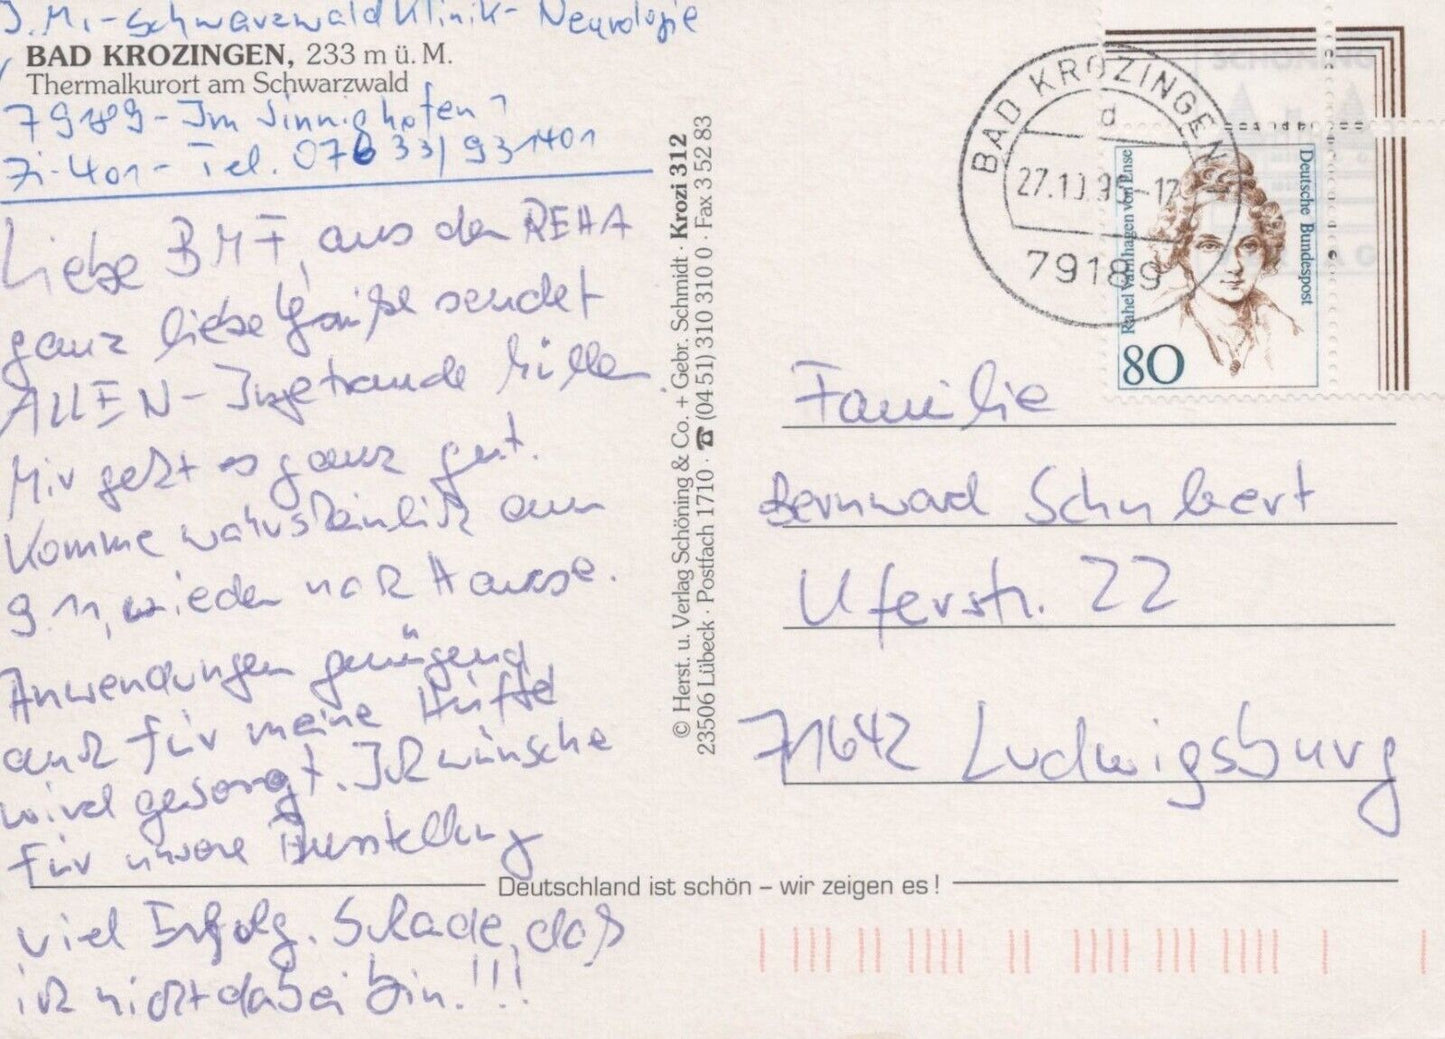 J. M. - Schwarzwald Klinik - Neurologie
BAD KROZINGEN, 233 m ü. M.
Thermalkurort am Schwarzwald
79189 - Im Sinnighofen 1
Zi - 401 - Tel. 07633/931401
Liebe BMF, aus der REHA
ganz liebe Grüße sendet
ALLEN - Ingetraude
Mir geht es ganz gut.
Komme wahrscheinlich am
9.11, wieder nach Hause.
Anwendungen genügend
auch für meine Hüfte
wird gesorgt. Ich wünsche
für unsere Ausstellung
viel Erfolg. Schade, daß
ich nicht dabei bin.!!!
Deutschland ist schön – wir zeigen es!
© Herst. u. Verlag Schöning & Co. + Gebr. Schmidt · Krozi 312
23506 Lübeck · Postfach 1710 · ☎ (04 51) 310 310 0 · Fax 3 52 83
BAD KROZINGEN
d
79189
Rahel Varnhagen von Ense
Deutsche Bundespost
80
Familie
Bernward Schubert
Uferstr. 22
71642 Ludwigsburg